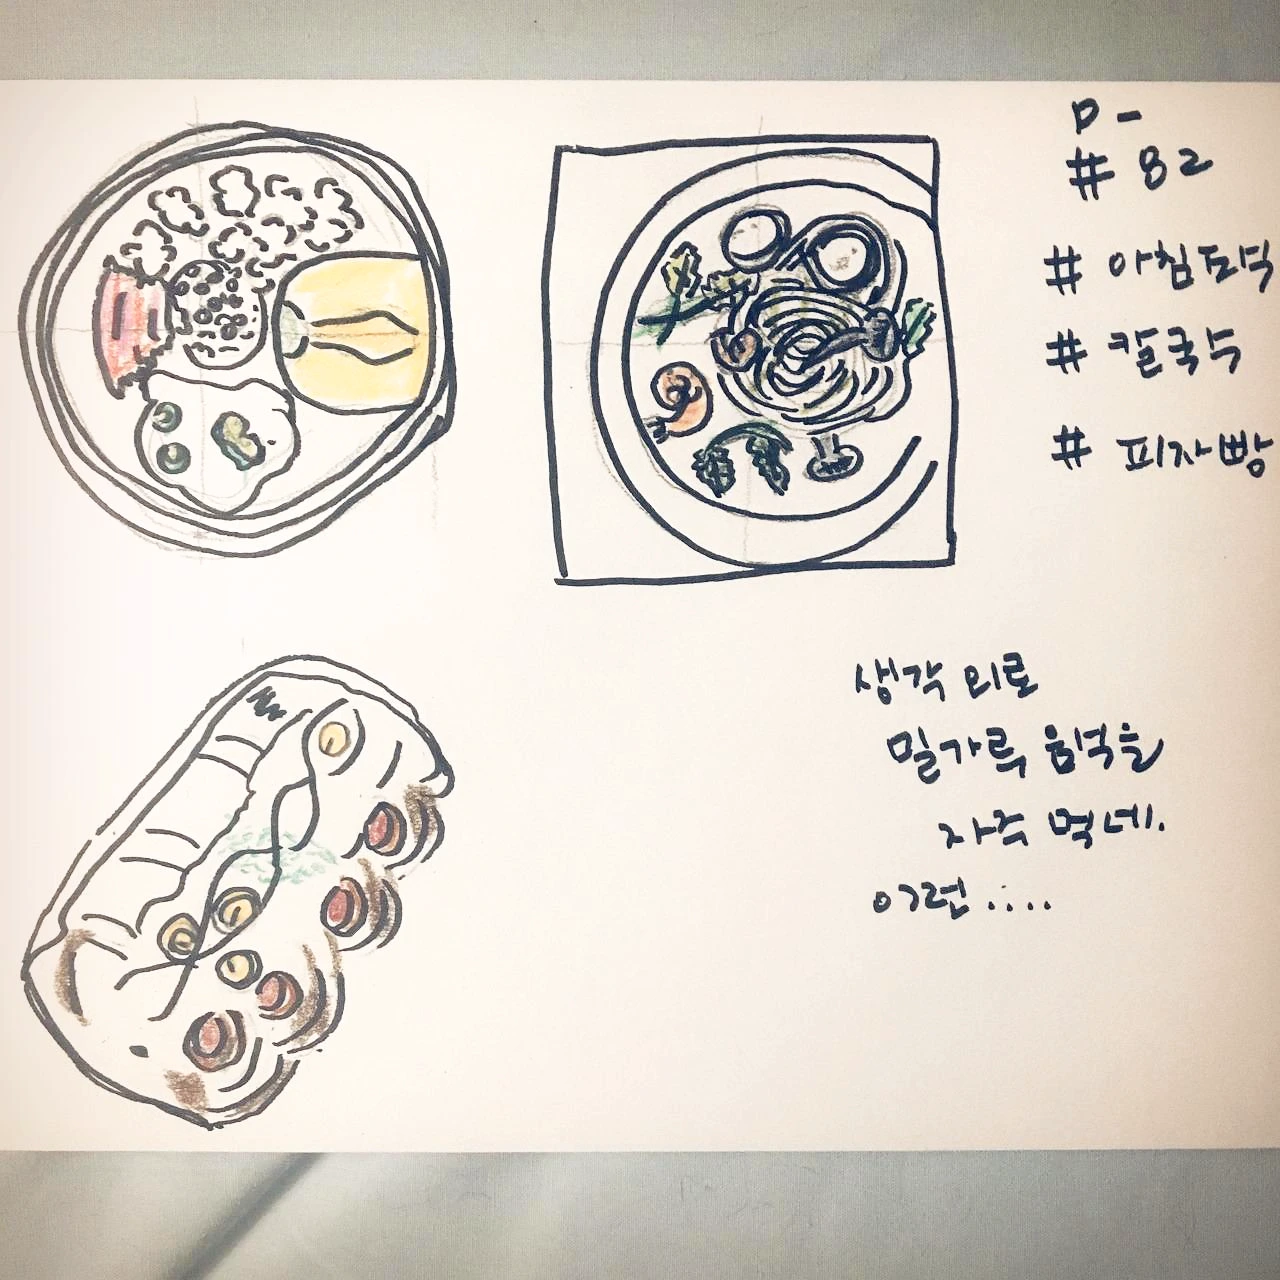 D-
# 82
# 아침도덕
# 칼국수
# 피자빵
생각 외로
밀가루 음식을
자주 먹네.
이런....